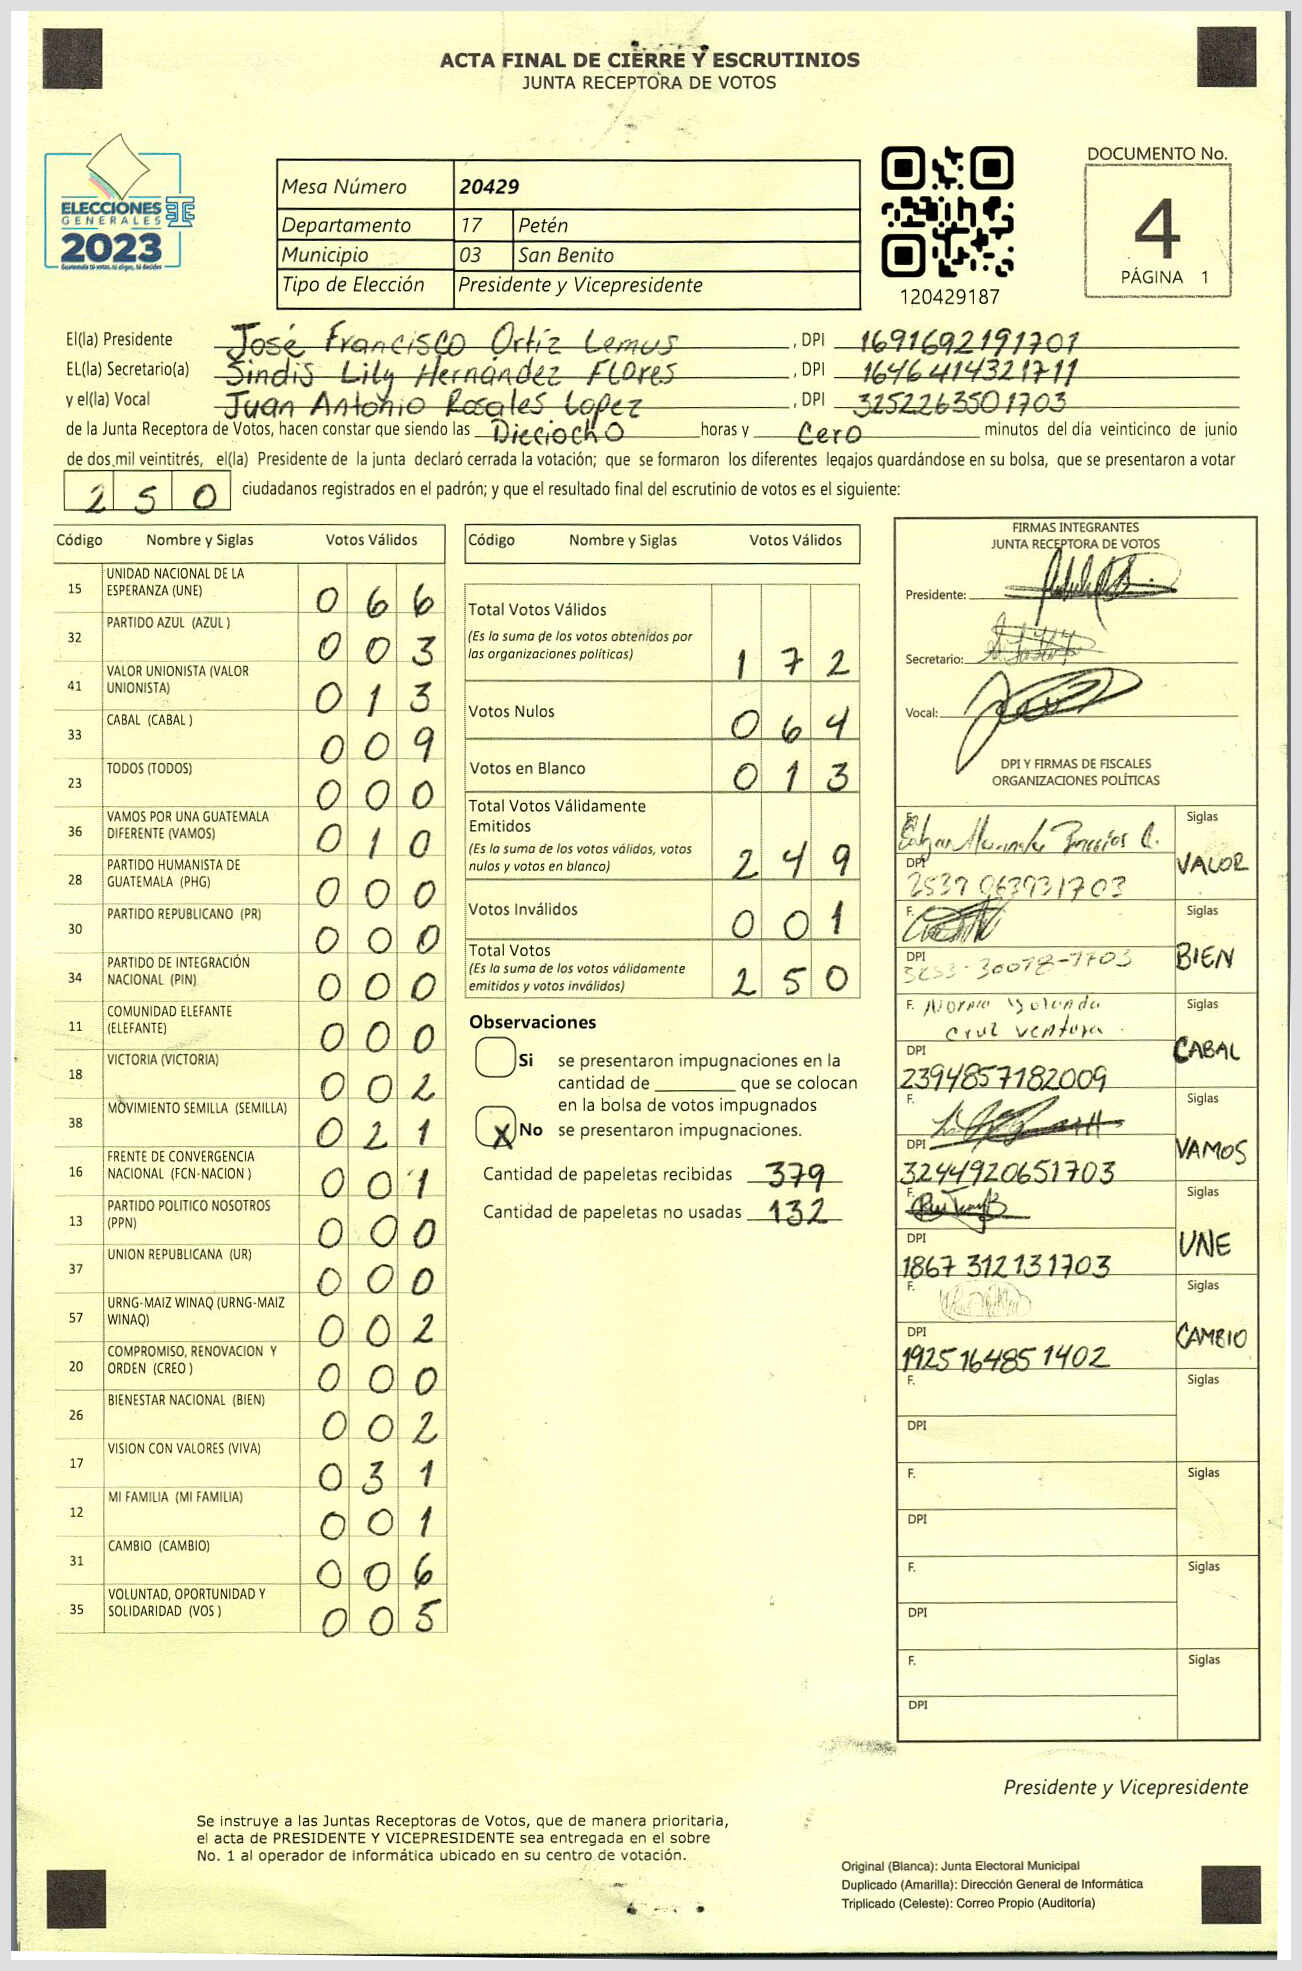 ACTA FINAL DE CIERRE Y ESCRUTINIOS
JUNTA RECEPTORA DE VOTOS
ELECCIONES
GENERALES
2023
Mesa Número 20429
Departamento 17 Petén
Municipio 03 San Benito
Tipo de Elección Presidente y Vicepresidente
120429187
DOCUMENTO No.
4
PÁGINA 1
El(la) Presidente José Francisco Ortiz Lemus , DPI 1691692191701
EL(la) Secretario(a) Sindis Lily Hernández Flores , DPI 1646414321711
y el(la) Vocal Juan Antonio Rosales Lopez , DPI 3252263501703
de la Junta Receptora de Votos, hacen constar que siendo las Dieciocho horas y Cero minutos del día veinticinco de junio
de dos mil veintitrés, el(la) Presidente de la junta declaró cerrada la votación; que se formaron los diferentes legajos guardándose en su bolsa, que se presentaron a votar
250 ciudadanos registrados en el padrón; y que el resultado final del escrutinio de votos es el siguiente:
Código Nombre y Siglas Votos Válidos
15 UNIDAD NACIONAL DE LA ESPERANZA (UNE) 066
32 PARTIDO AZUL (AZUL ) 003
41 VALOR UNIONISTA (VALOR UNIONISTA) 013
33 CABAL (CABAL ) 009
23 TODOS (TODOS) 000
36 VAMOS POR UNA GUATEMALA DIFERENTE (VAMOS) 010
28 PARTIDO HUMANISTA DE GUATEMALA (PHG) 000
30 PARTIDO REPUBLICANO (PR) 000
34 PARTIDO DE INTEGRACIÓN NACIONAL (PIN) 000
11 COMUNIDAD ELEFANTE (ELEFANTE) 000
18 VICTORIA (VICTORIA) 002
38 MOVIMIENTO SEMILLA (SEMILLA) 021
16 FRENTE DE CONVERGENCIA NACIONAL (FCN-NACION ) 001
13 PARTIDO POLITICO NOSOTROS (PPN) 000
37 UNION REPUBLICANA (UR) 000
57 URNG-MAIZ WINAQ (URNG-MAIZ WINAQ) 002
20 COMPROMISO, RENOVACION Y ORDEN (CREO ) 000
26 BIENESTAR NACIONAL (BIEN) 002
17 VISION CON VALORES (VIVA) 031
12 MI FAMILIA (MI FAMILIA) 001
31 CAMBIO (CAMBIO) 006
35 VOLUNTAD, OPORTUNIDAD Y SOLIDARIDAD (VOS ) 005
Código Nombre y Siglas Votos Válidos
Total Votos Válidos
(Es la suma de los votos obtenidos por
las organizaciones politicas) 172
Votos Nulos 064
Votos en Blanco 013
Total Votos Válidamente
Emitidos
(Es la suma de los votos válidos, votos
nulos y votos en blanco) 249
Votos Inválidos 001
Total Votos
(Es la suma de los votos válidamente
emitidos y votos inválidos) 250
Observaciones
Si se presentaron impugnaciones en la
cantidad de ________ que se colocan
en la bolsa de votos impugnados
X No se presentaron impugnaciones.
Cantidad de papeletas recibidas 379
Cantidad de papeletas no usadas 132
FIRMAS INTEGRANTES
JUNTA RECEPTORA DE VOTOS
Presidente:
Secretario:
Vocal:
DPI Y FIRMAS DE FISCALES
ORGANIZACIONES POLÍTICAS
F. Siglas
DPI VALOR
F. Siglas
DPI BIEN
F. Norma Yolanda Siglas
Cruz Ventura
DPI CABAL
2394857182009
F. Siglas
DPI VAMOS
3244920651703
F. Siglas
DPI UNE
1867 312131703
F. Siglas
DPI CAMBIO
1925164851402
F. Siglas
DPI
F. Siglas
DPI
F. Siglas
DPI
F. Siglas
DPI
Presidente y Vicepresidente
Se instruye a las Juntas Receptoras de Votos, que de manera prioritaria,
el acta de PRESIDENTE Y VICEPRESIDENTE sea entregada en el sobre
No. 1 al operador de informática ubicado en su centro de votación.
Original (Blanca): Junta Electoral Municipal
Duplicado (Amarilla): Dirección General de Informática
Triplicado (Celeste): Correo Propio (Auditoría)